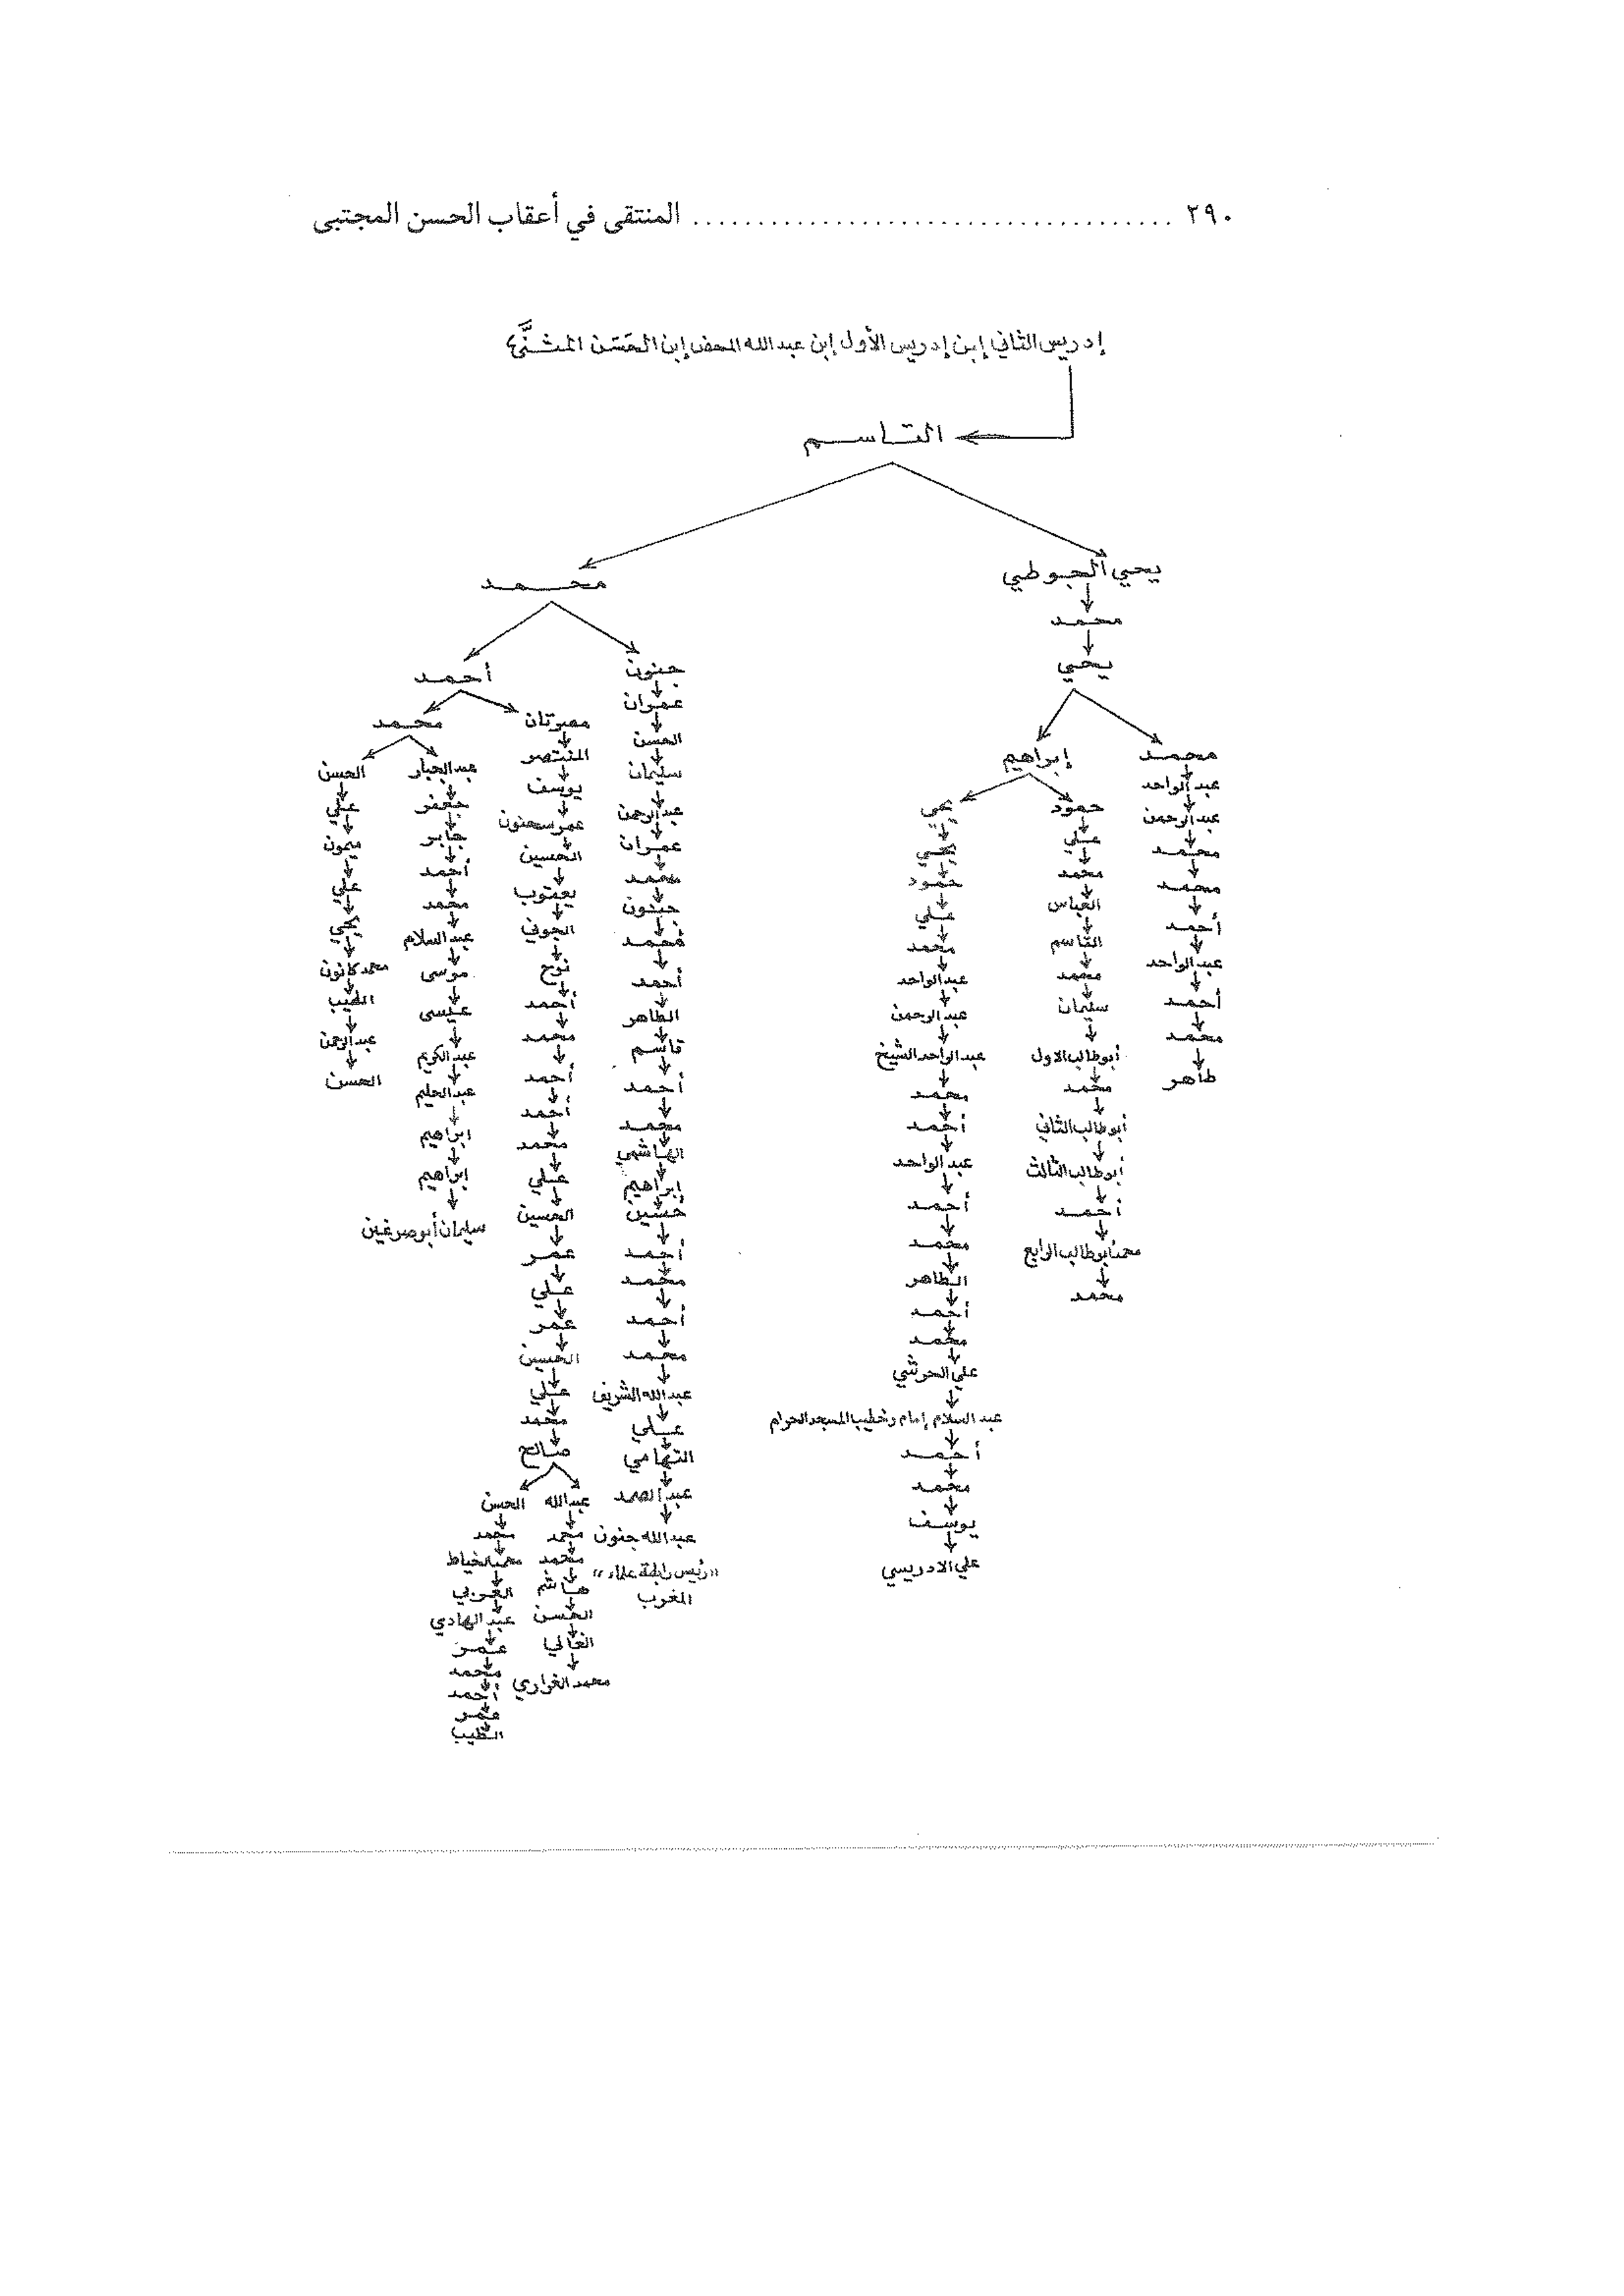 ٢٩٠ ..................................... المنتقى في أعقاب الحسن المجتبى
إدريس الثاني إبن إدريس الأول إبن عبد الله المحض إبن الحسن المثنَّى
القاسم
يحيي الجوطي
محمد
يحيي
محمد
عبد الواحد
عبد الرحمن
محمد
محمد
أحمد
عبد الواحد
أحمد
محمد
طاهر
إبراهيم
حمود
علي
محمد
العباس
القاسم
محمد
سليمان
أبو طالب الاول
محمد
أبو طالب الثاني
أبو طالب الثالث
أحمد
محمد أبو طالب الرابع
محمد
يحي
علي
حمود
علي
محمد
عبد الواحد
عبد الرحمن
عبد الواحد الشيخ
محمد
أحمد
عبد الواحد
أحمد
محمد
الطاهر
أحمد
محمد
علي الحرشي
عبد السلام إمام وخطيب المسجد الحرام
أحمد
محمد
يوسف
علي الادريسي
محمد
جنون
عمران
الحسن
سليمان
عبد الرحمن
عمران
محمد
جنون
محمد
أحمد
الطاهر
قاسم
أحمد
محمد
الهاشمي
إبراهيم
حسين
أحمد
محمد
أحمد
محمد
عبد الله الشريف
علي
التهامي
عبد الصمد
عبد الله جنون
"رئيس رابطة علماء"
المغرب
أحمد
مصرتان
المنتصر
يوسف
عمر سحنون
الحسين
يعقوب
الجوني
نوح
أحمد
محمد
أحمد
أحمد
محمد
علي
الحسين
عمر
علي
عمر
الحسين
علي
محمد
صالح
عبد الله
محمد
محمد
هاشم
الحسن
الغالي
محمد الغراري
الحسن
محمد
محمد الخياط
العربي
عبد الهادي
عمر
محمد
أحمد
عمر
الطيب
محمد
عبد الجبار
جعفر
جابر
أحمد
محمد
عبد السلام
موسى
عيسى
عبد الكريم
عبد الحليم
ابراهيم
ابراهيم
سليمان أبو صرغين
الحسن
علي
ميمون
علي
يحي
محمد كانون
الطيب
عبد الرحمن
الحسن